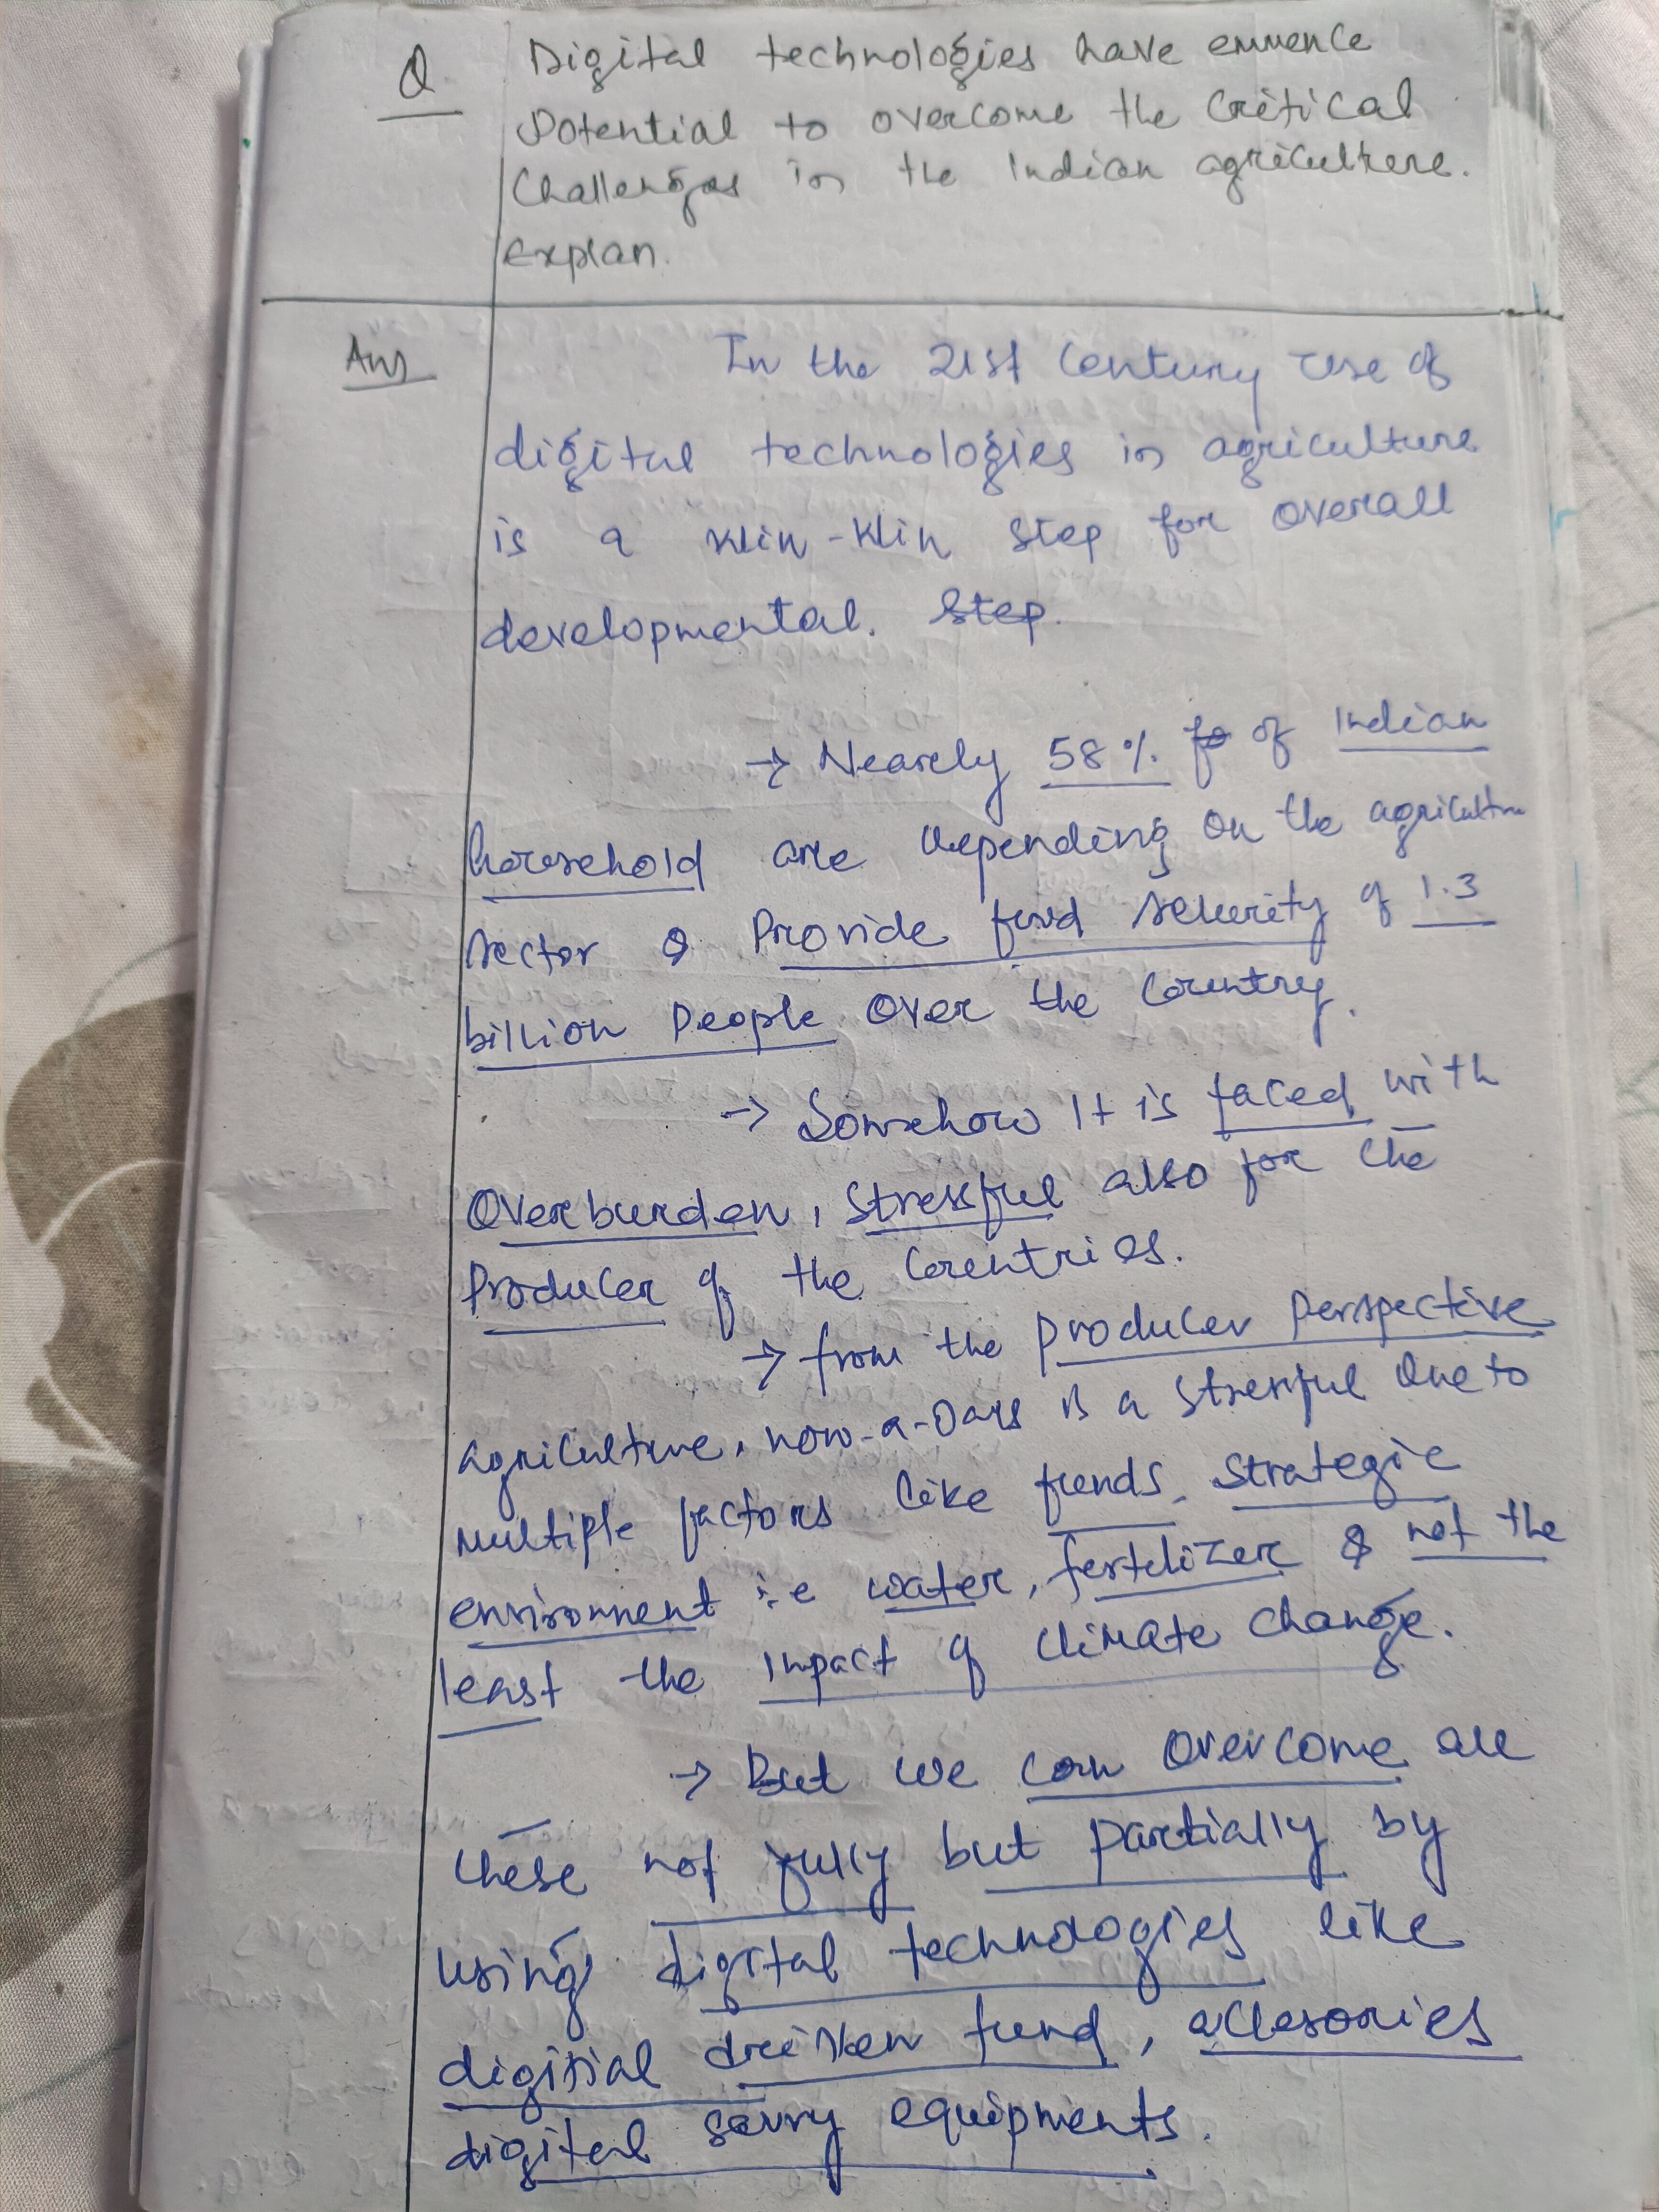 Q Digital technologies have emmence
Potential to overcome the Critical
Challenges in the Indian agriculture.
explan.
Ans In the 21st Century use of
digital technologies in agriculture
is a Win-Win Step for overall
developmental. Step.
→ Nearely 58% fo of Indian
household are depending on the agriculture
sector & Provide food security of 1.3
billion People Over the Country.
→ Somehow It is faced with
Overburden, Stressful also for the
Producer of the Countries.
→ from the Producer Perspective
agriculture, now-a-Days is a Stressful Due to
Multiple factors like funds, Strategic
environment i.e water, fertilizer & not the
least the Impact of Climate Change.
→ But we can Overcome all
these not fully but Partially by
using digital technologies like
digitial driven fund, accesories
digital savvy equipments.